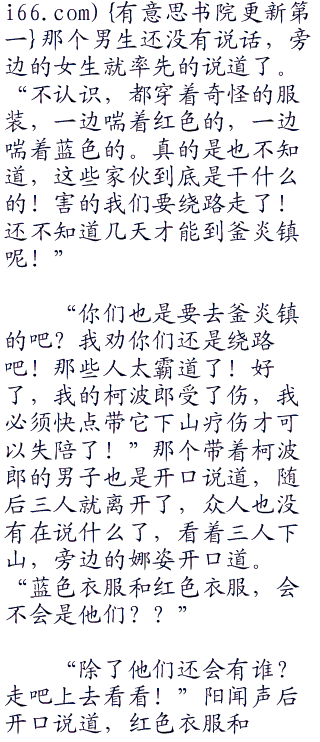 i66.com){有意思书院更新第
一}那个男生还没有说话，旁
边的女生就率先的说道了。
“不认识，都穿着奇怪的服
装，一边喘着红色的，一边
喘着蓝色的。真的是也不知
道，这些家伙到底是干什么
的！害的我们要绕路走了！
还不知道几天才能到釜炎镇
呢！”
“你们也是要去釜炎镇
的吧？我劝你们还是绕路
吧！那些人太霸道了！好
了，我的柯波郎受了伤，我
必须快点带它下山疗伤才可
以失陪了！”那个带着柯波
郎的男子也是开口说道，随
后三人就离开了，众人也没
有在说什么了，看着三人下
山，旁边的娜姿开口道。
“蓝色衣服和红色衣服，会
不会是他们？？”
“除了他们还会有谁？
走吧上去看看！”阳闻声后
开口说道，红色衣服和